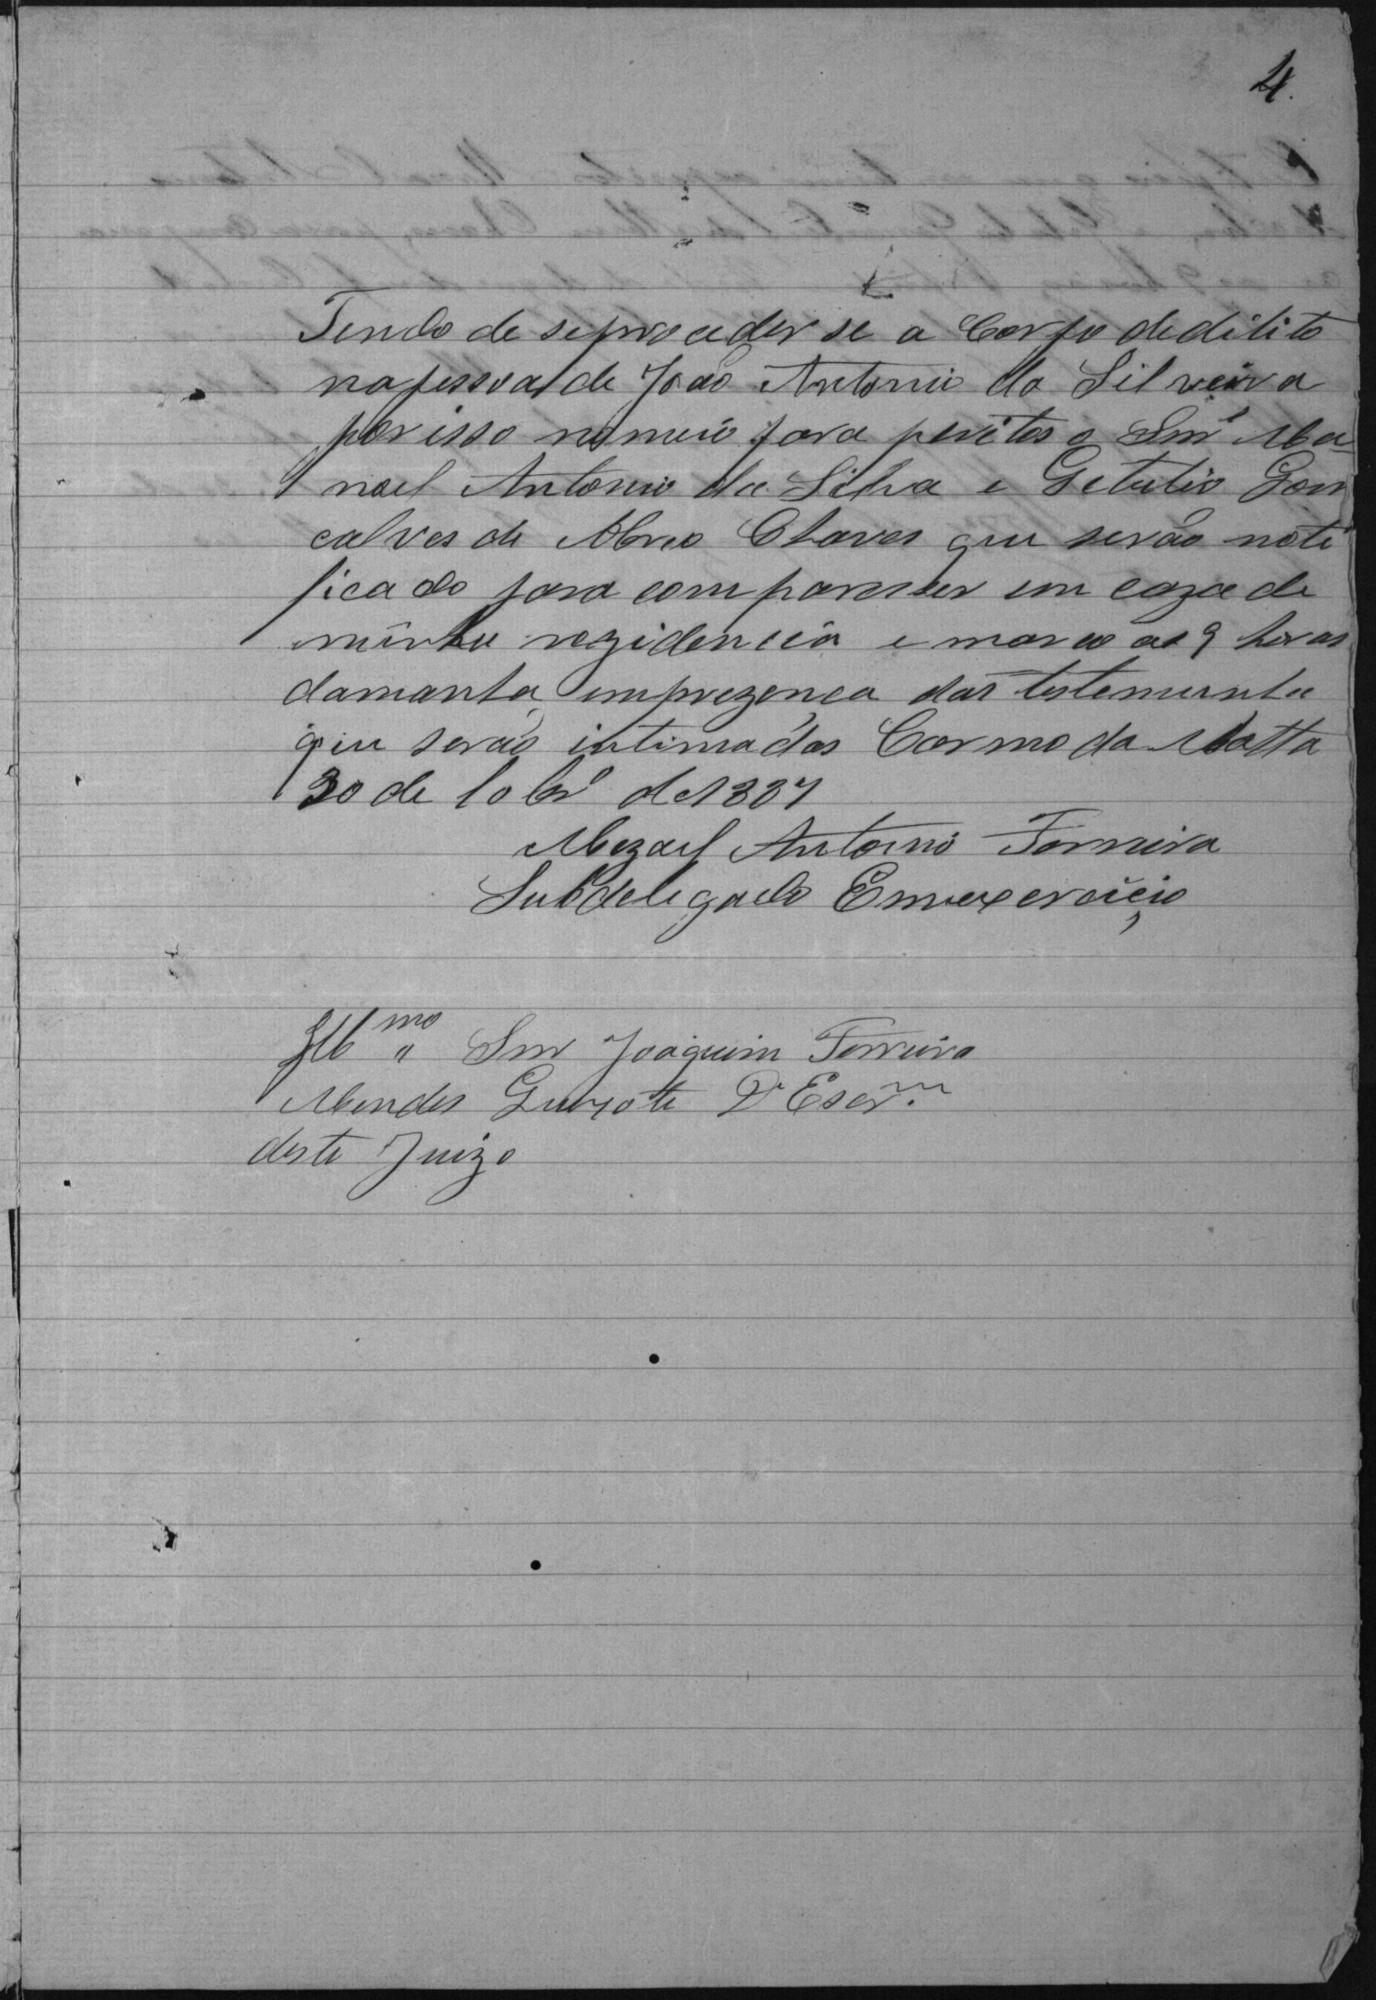 4.
Tendo de seproceder se a Corpo dedilito
napessoa de João Antonio da Silveira
por isso nomeio para peritos o Snr Ma-
noel Antonio da Silva e Getulio Gon
calves de Abreo Chaves que serão noti
ficado para comparesser em caza de
minha rezidencia e marco as 9 horas
damanha emprezenca das testemunha
que serão intimadas Carmo da Matta
30 de 10br.º de 1887
Antonio Ferreira
Subdelegado Emexercicio
Illmo Snr Joaquim Ferreira
Mendes D Escrm
deste Juizo